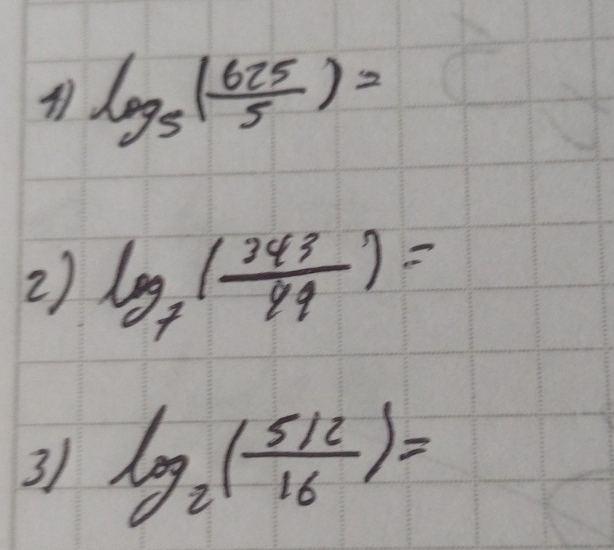 1) log₅(625/5)=
2) log₇(343/49)=
3) log₂(512/16)=